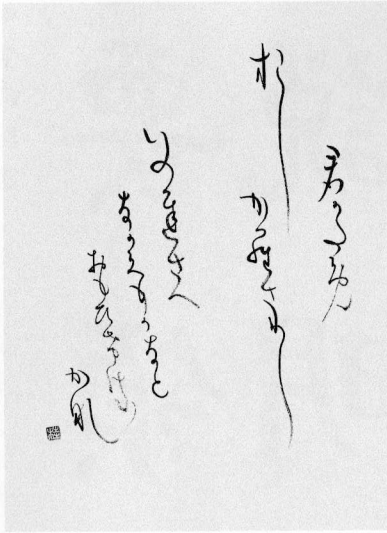 君かため
おし
からさりし
いのちさへ
なかくもかなと
おもひける
かな